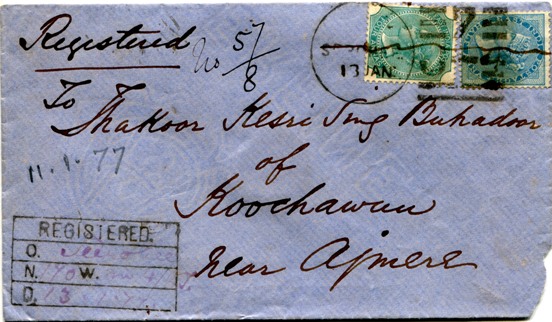 Registered
No 57/8
13 JAN
To
Thakoor Kesri Sing Buhadoor
of
11.1.77
Koochawun
near Ajmere
REGISTERED.
O.
N. W.
D. 13